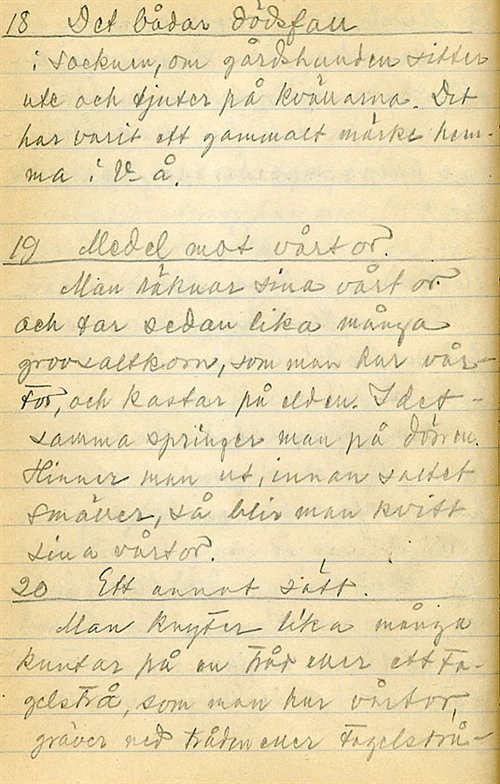 18 Det bådar dödsfall
i socknen, om gårdshunden sitter
ute och tjuter på kvällarna. Det
har varit ett gammalt märke hem-
ma i V-å.
19 Medel mot vårtor.
Man räknar sina vårtor
och tar sedan lika många
grovsaltkorn, som man har vår-
tor, och kastar på elden. I det-
samma springer man på dörren.
Hinner man ut, innan saltet
smäller, så blir man kvitt
sina vårtor.
20 Ett annat sätt.
Man knyter lika många
knutar på en tråd eller ett ta-
gelstrå, som man har vårtor,
gräver ned tråden eller tagelstrå-